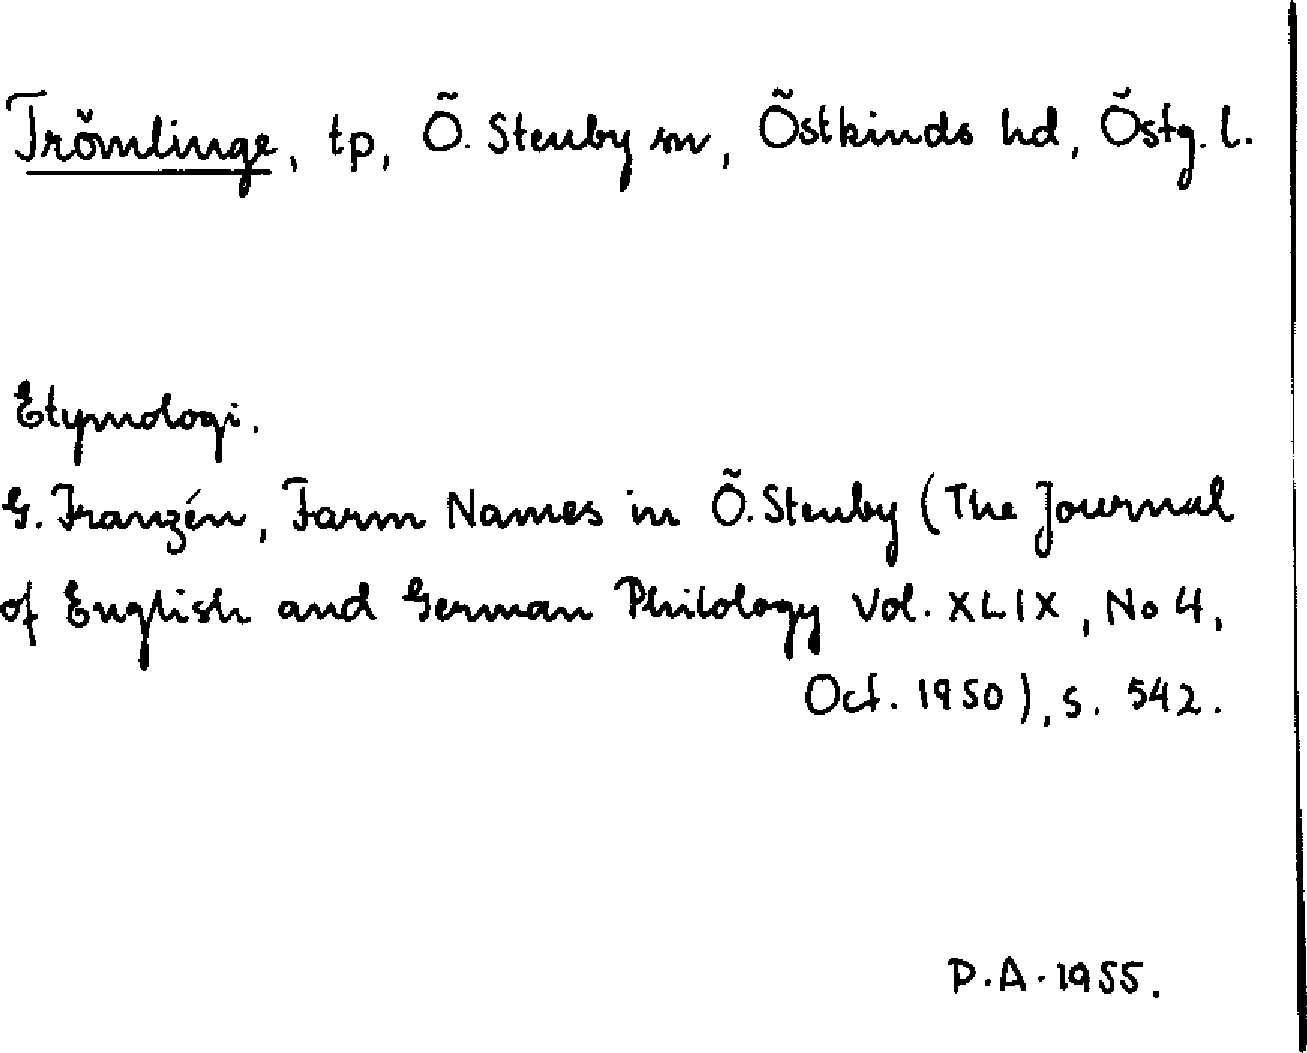 Trömlinge, tp, Ö. Stenby sn, Östkinds hd, Östg. l.
Etymologi.
G. Franzén, Farm Names in Ö. Stenby (The Journal
of English and German Philology Vol. XLIX, No 4,
Oct. 1950), s. 542.
P.A. 1955.